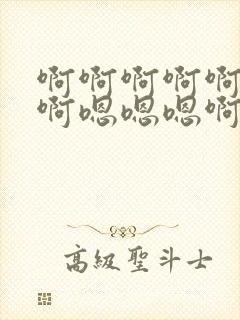 啊啊啊啊啊
啊嗯嗯嗯啊
高級聖斗士